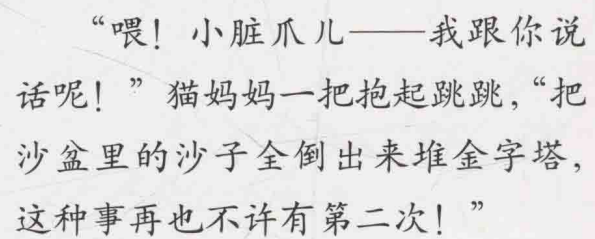 “喂！小脏爪儿——我跟你说
话呢！”猫妈妈一把抱起跳跳，“把
沙盆里的沙子全倒出来堆金字塔，
这种事再也不许有第二次！”